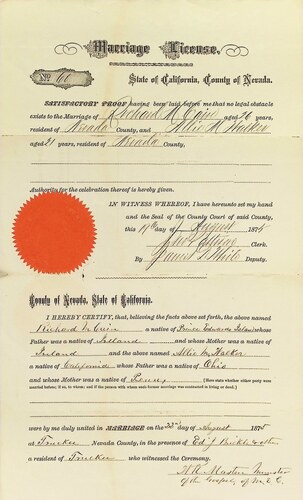 Marriage License.
No. 60
State of California, County of Nevada.
SATISFACTORY PROOF having been laid before me that no legal obstacle
exists to the Marriage of Richard aged 26 years,
resident of Nevada County, and Allie M Walker
aged 21 years, resident of Nevada County,
Authority for the celebration thereof is hereby given.
IN WITNESS WHEREOF, I have hereunto set my hand
and the Seal of the County Court of said County,
this day of August 1875
Clerk.
By James Deputy.
County of Nevada, State of California.
I HEREBY CERTIFY, that, believing the facts above set forth, the above named
Richard a native of Prince Edwards Island whose
Father was a native of Ireland and whose Mother was a native of
Ireland and the above named Allie M. Walker
a native of California whose Father was a native of Ohio
and whose Mother was a native of Penn
were by me duly united in MARRIAGE on the 22d day of August 1875
at Truckee Nevada County, in the presence of Ed. J Brickle & other
a resident of Truckee who witnessed the Ceremony.
Minister
of the Gospel of M. E. C.